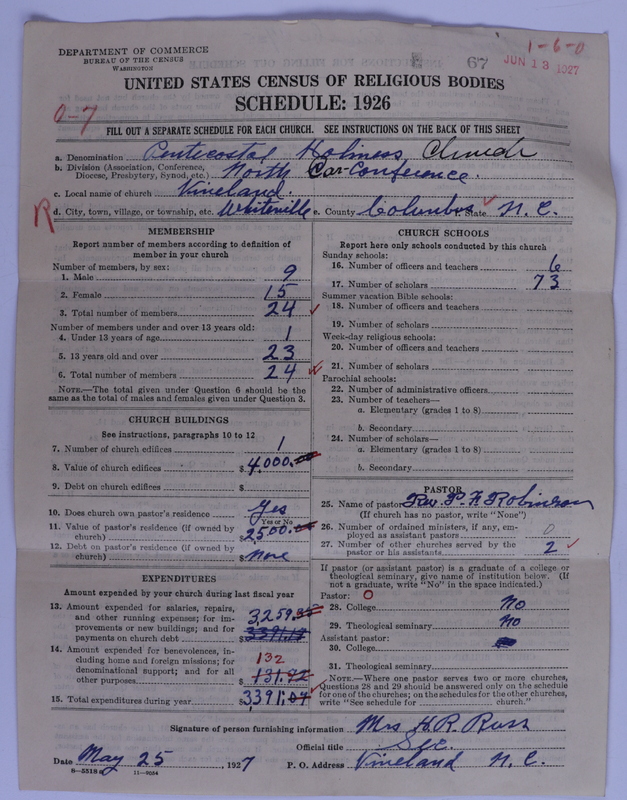 DEPARTMENT OF COMMERCE
BUREAU OF THE CENSUS
WASHINGTON
67
JUN 13 1927
1-6-0
UNITED STATES CENSUS OF RELIGIOUS BODIES
SCHEDULE: 1926
0-7
FILL OUT A SEPARATE SCHEDULE FOR EACH CHURCH. SEE INSTRUCTIONS ON THE BACK OF THIS SHEET
a. Denomination Pentecostal Holiness Church
b. Division (Association, Conference, Diocese, Presbytery, Synod, etc.) North Car-Conference.
c. Local name of church Vineland.
R d. City, town, village, or township, etc. Whiteville e. County Columbus State N. C.
MEMBERSHIP
Report number of members according to definition of
member in your church
Number of members, by sex:
1. Male 9
2. Female 15
3. Total number of members 24
Number of members under and over 13 years old:
4. Under 13 years of age 1
5. 13 years old and over 23
6. Total number of members 24
NOTE.—The total given under Question 6 should be
same as the total of males and females given under Question 3.
CHURCH BUILDINGS
See instructions, paragraphs 10 to 12
7. Number of church edifices 1
8. Value of church edifices $4,000.
9. Debt on church edifices $
10. Does church own pastor's residence yes
Yes or No
11. Value of pastor's residence (if owned by
church) $2500.
12. Debt on pastor's residence (if owned by
church) $ None
EXPENDITURES
Amount expended by your church during last fiscal year
13. Amount expended for salaries, repairs,
and other running expenses; for im-
provements or new buildings; and for
payments on church debt $ 3,259.
14. Amount expended for benevolences, in-
cluding home and foreign missions; for
denominational support; and for all
other purposes $ 132 131.92
15. Total expenditures during year $3,391.04
CHURCH SCHOOLS
Report here only schools conducted by this church
Sunday schools:
16. Number of officers and teachers 6
17. Number of scholars 73
Summer vacation Bible schools:
18. Number of officers and teachers
19. Number of scholars
Week-day religious schools:
20. Number of officers and teachers
21. Number of scholars
Parochial schools:
22. Number of administrative officers
23. Number of teachers—
a. Elementary (grades 1 to 8)
b. Secondary
24. Number of scholars—
a. Elementary (grades 1 to 8)
b. Secondary
PASTOR
25. Name of pastor Rev. P. F. Robinson
(If church has no pastor, write "None")
26. Number of ordained ministers, if any, em-
ployed as assistant pastors 0
27. Number of other churches served by the
pastor or his assistants 2
If pastor (or assistant pastor) is a graduate of a college or
theological seminary, give name of institution below. (If
not a graduate, write "No" in the space indicated.)
Pastor: 0
28. College No
29. Theological seminary No
Assistant pastor:
30. College
31. Theological seminary
NOTE.—Where one pastor serves two or more churches,
Questions 28 and 29 should be answered only on the schedule
for one of the churches; on the schedules for the other churches,
write "See schedule for church."
Signature of person furnishing information Mrs H. R. Russ
Official title Sec.
Date May 25, 1927 P. O. Address Vineland N. C.
8-5518 a 11-9034